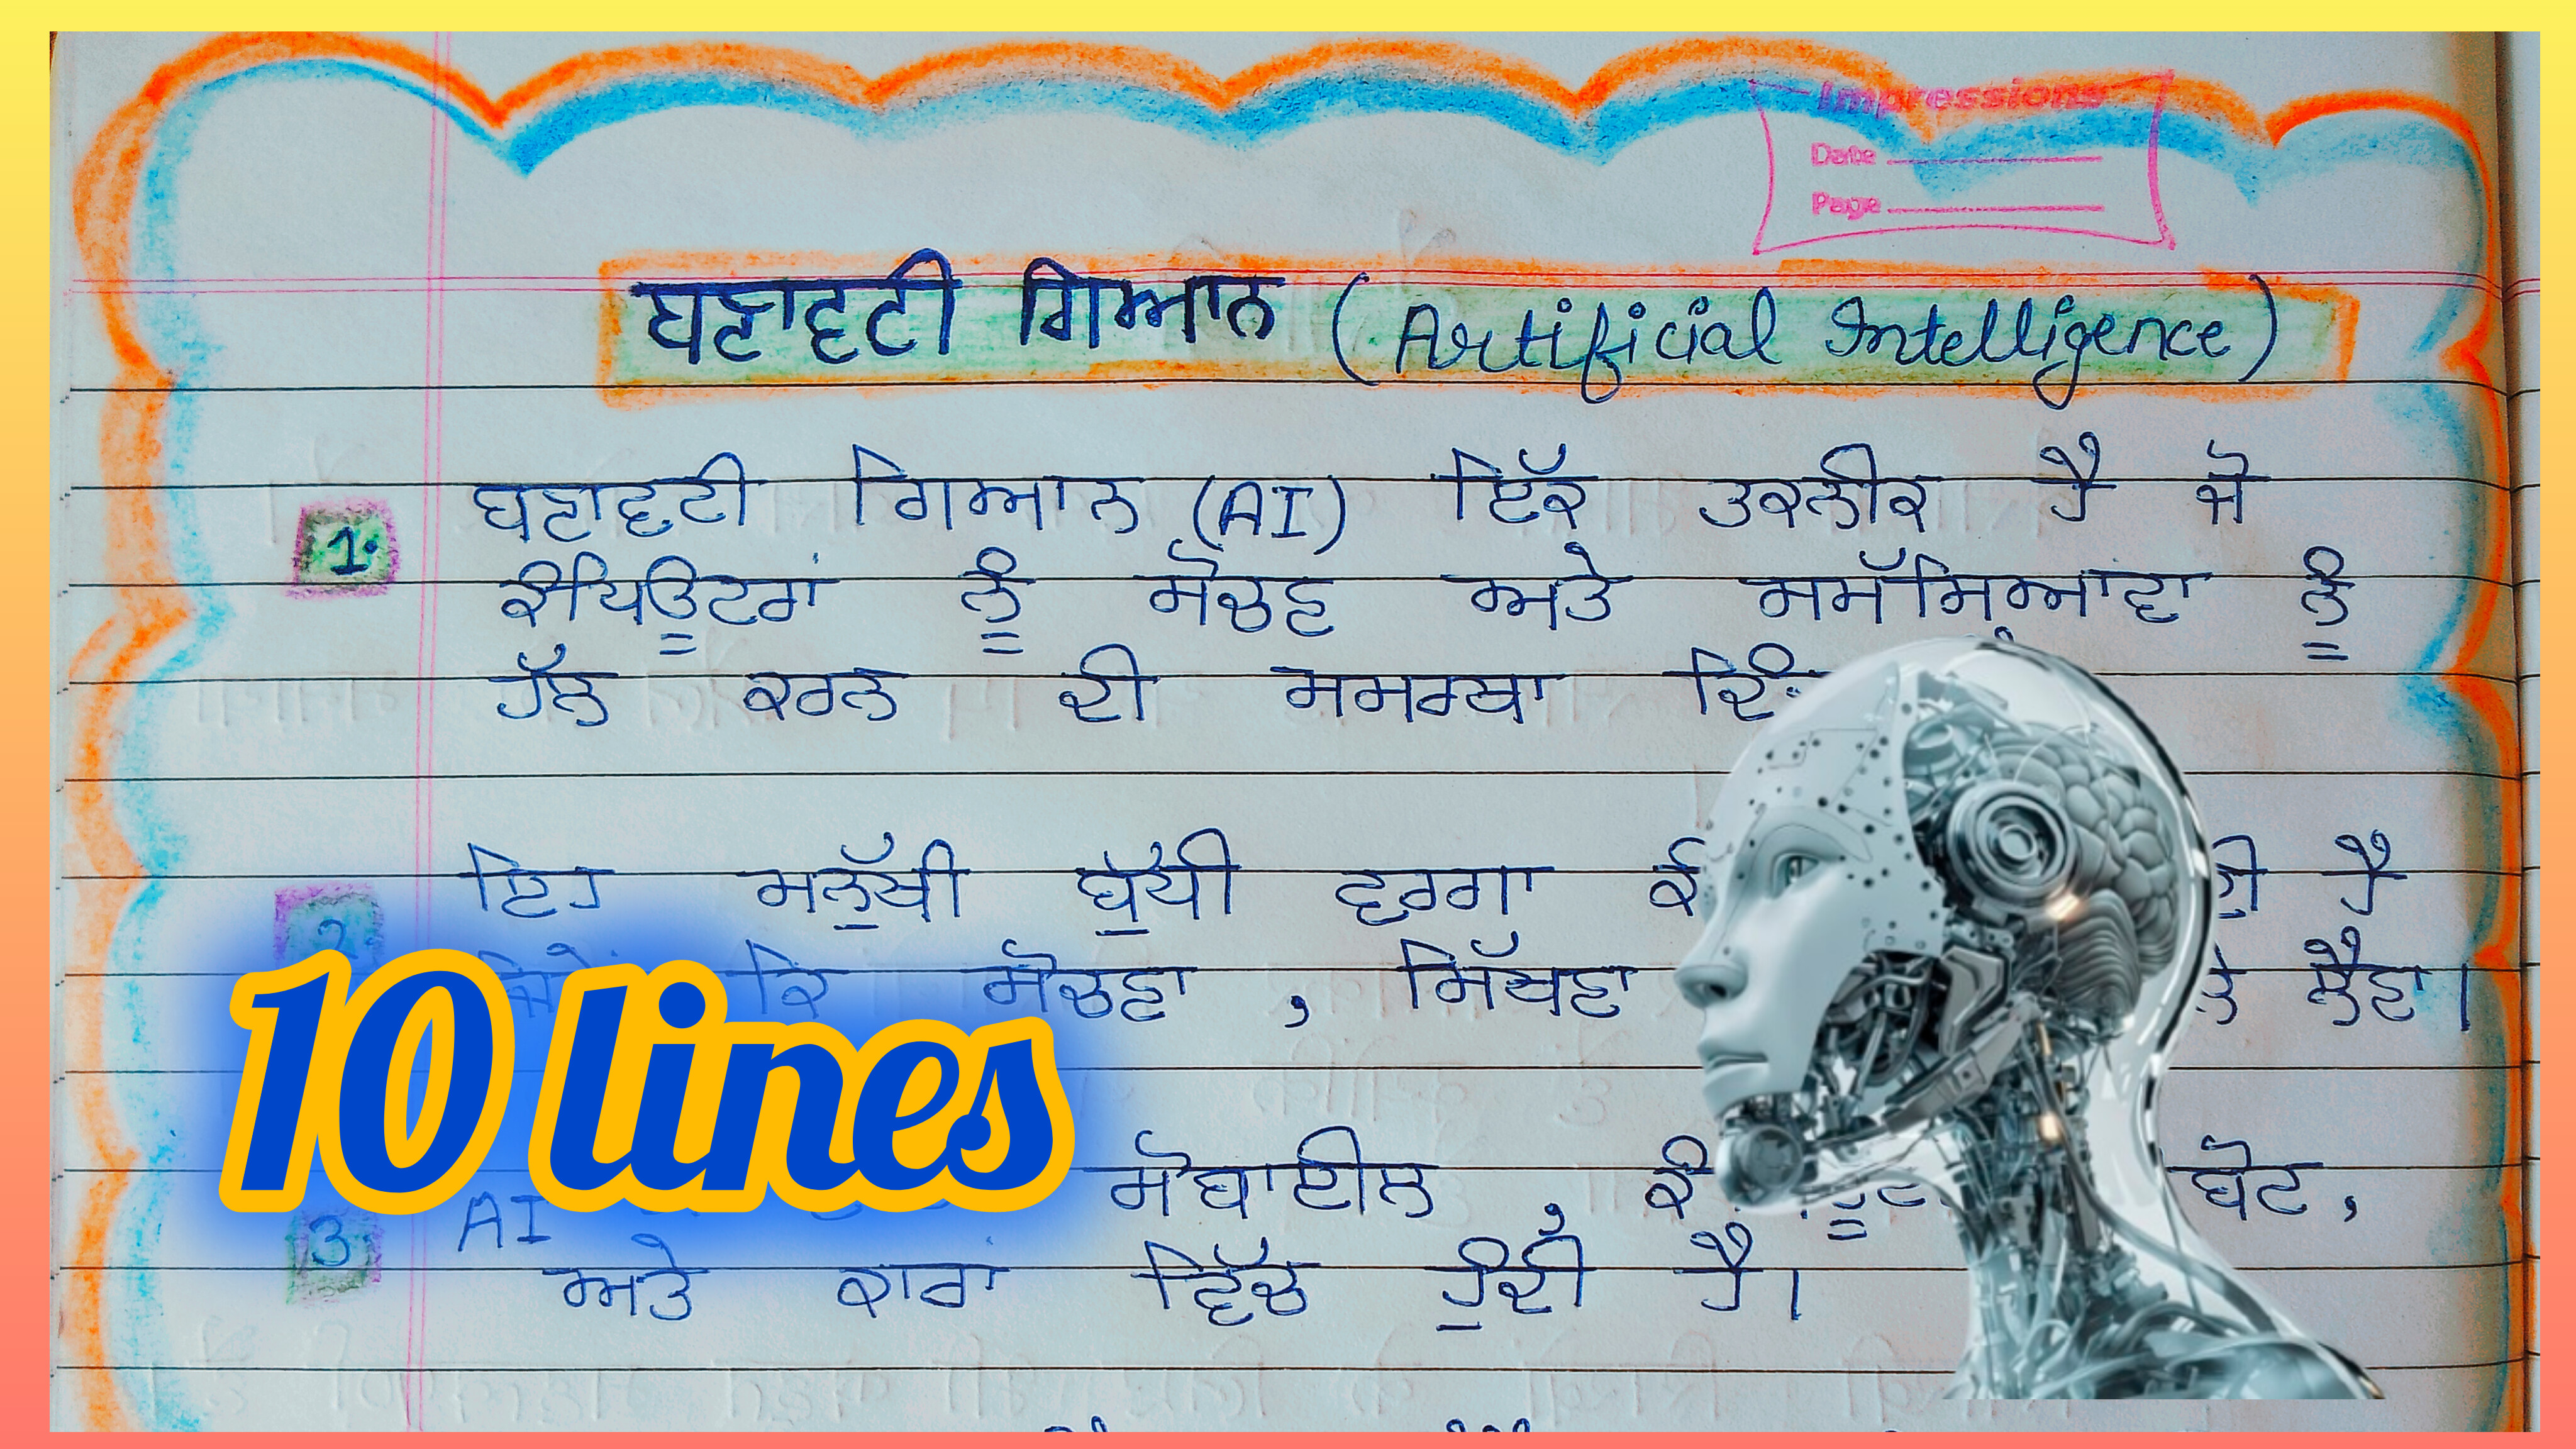 Impressions
Date
Page
ਬਣਾਵਟੀ ਗਿਆਨ (Artificial Intelligence)
1. ਬਣਾਵਟੀ ਗਿਆਨ (AI) ਇੱਕ ਤਕਨੀਕ ਹੈ ਜੋ
ਕੰਪਿਊਟਰਾਂ ਨੂੰ ਸੋਚਣ ਅਤੇ ਸਮੱਸਿਆਵਾਂ ਨੂੰ
ਹੱਲ ਕਰਨ ਦੀ ਸਮਰਥਾ
2. ਇਹ ਮਨੁੱਖੀ ਬੁੱਧੀ ਵਰਗਾ ਹੈ
ਕਿ ਸੋਚਣਾ , ਸਿੱਖਣਾ ਲੈਣਾ।
10 lines
3. AI ਮੋਬਾਈਲ , ਬੋਟ ,
ਅਤੇ ਕਾਰਾਂ ਵਿੱਚ ਹੁੰਦੀ ਹੈ।